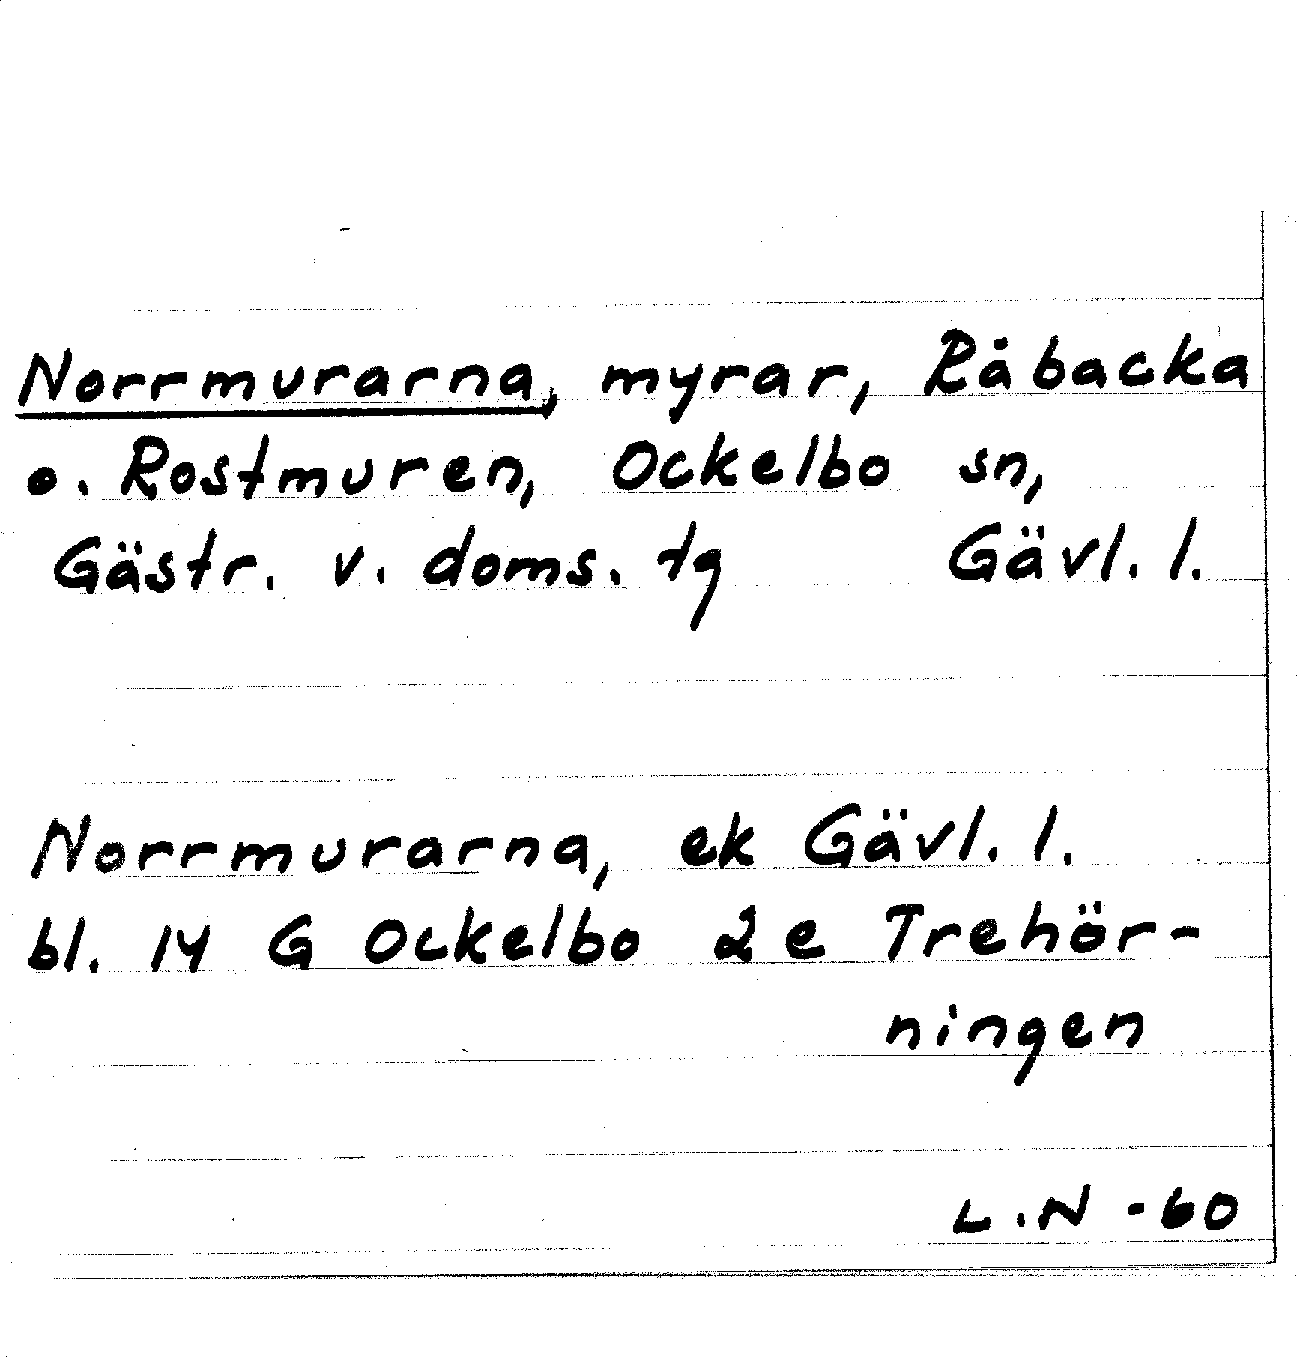 Norrmurarna, myrar, Råbacka
o. Rostmuren, Ockelbo sn,
Gästr. v. doms. tg Gävl. l.
Norrmurarna, ek Gävl. l.
bl. 14 G Ockelbo 2 e Trehör-
ningen
L.N -60